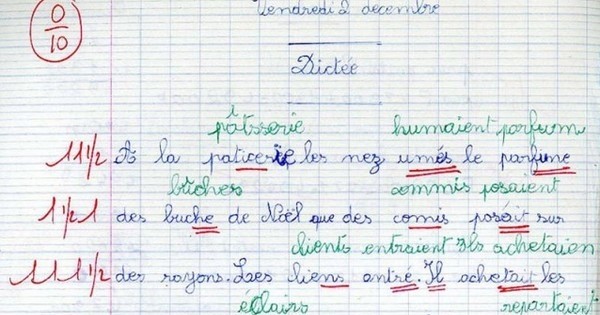 0
10
Vendredi 2 decembre
Dictée
i
pâtsserie humaient parfum
11 1/2 A la paticerie les nez umés le parfume
bûches commis posaient
1 1/2 1 des buche de Noël que des comis posait sur
clients entraient Ils achetaien
1 1 1 1/2 des rayons. Les liens entré. Il achetait les
éclairs repartaient